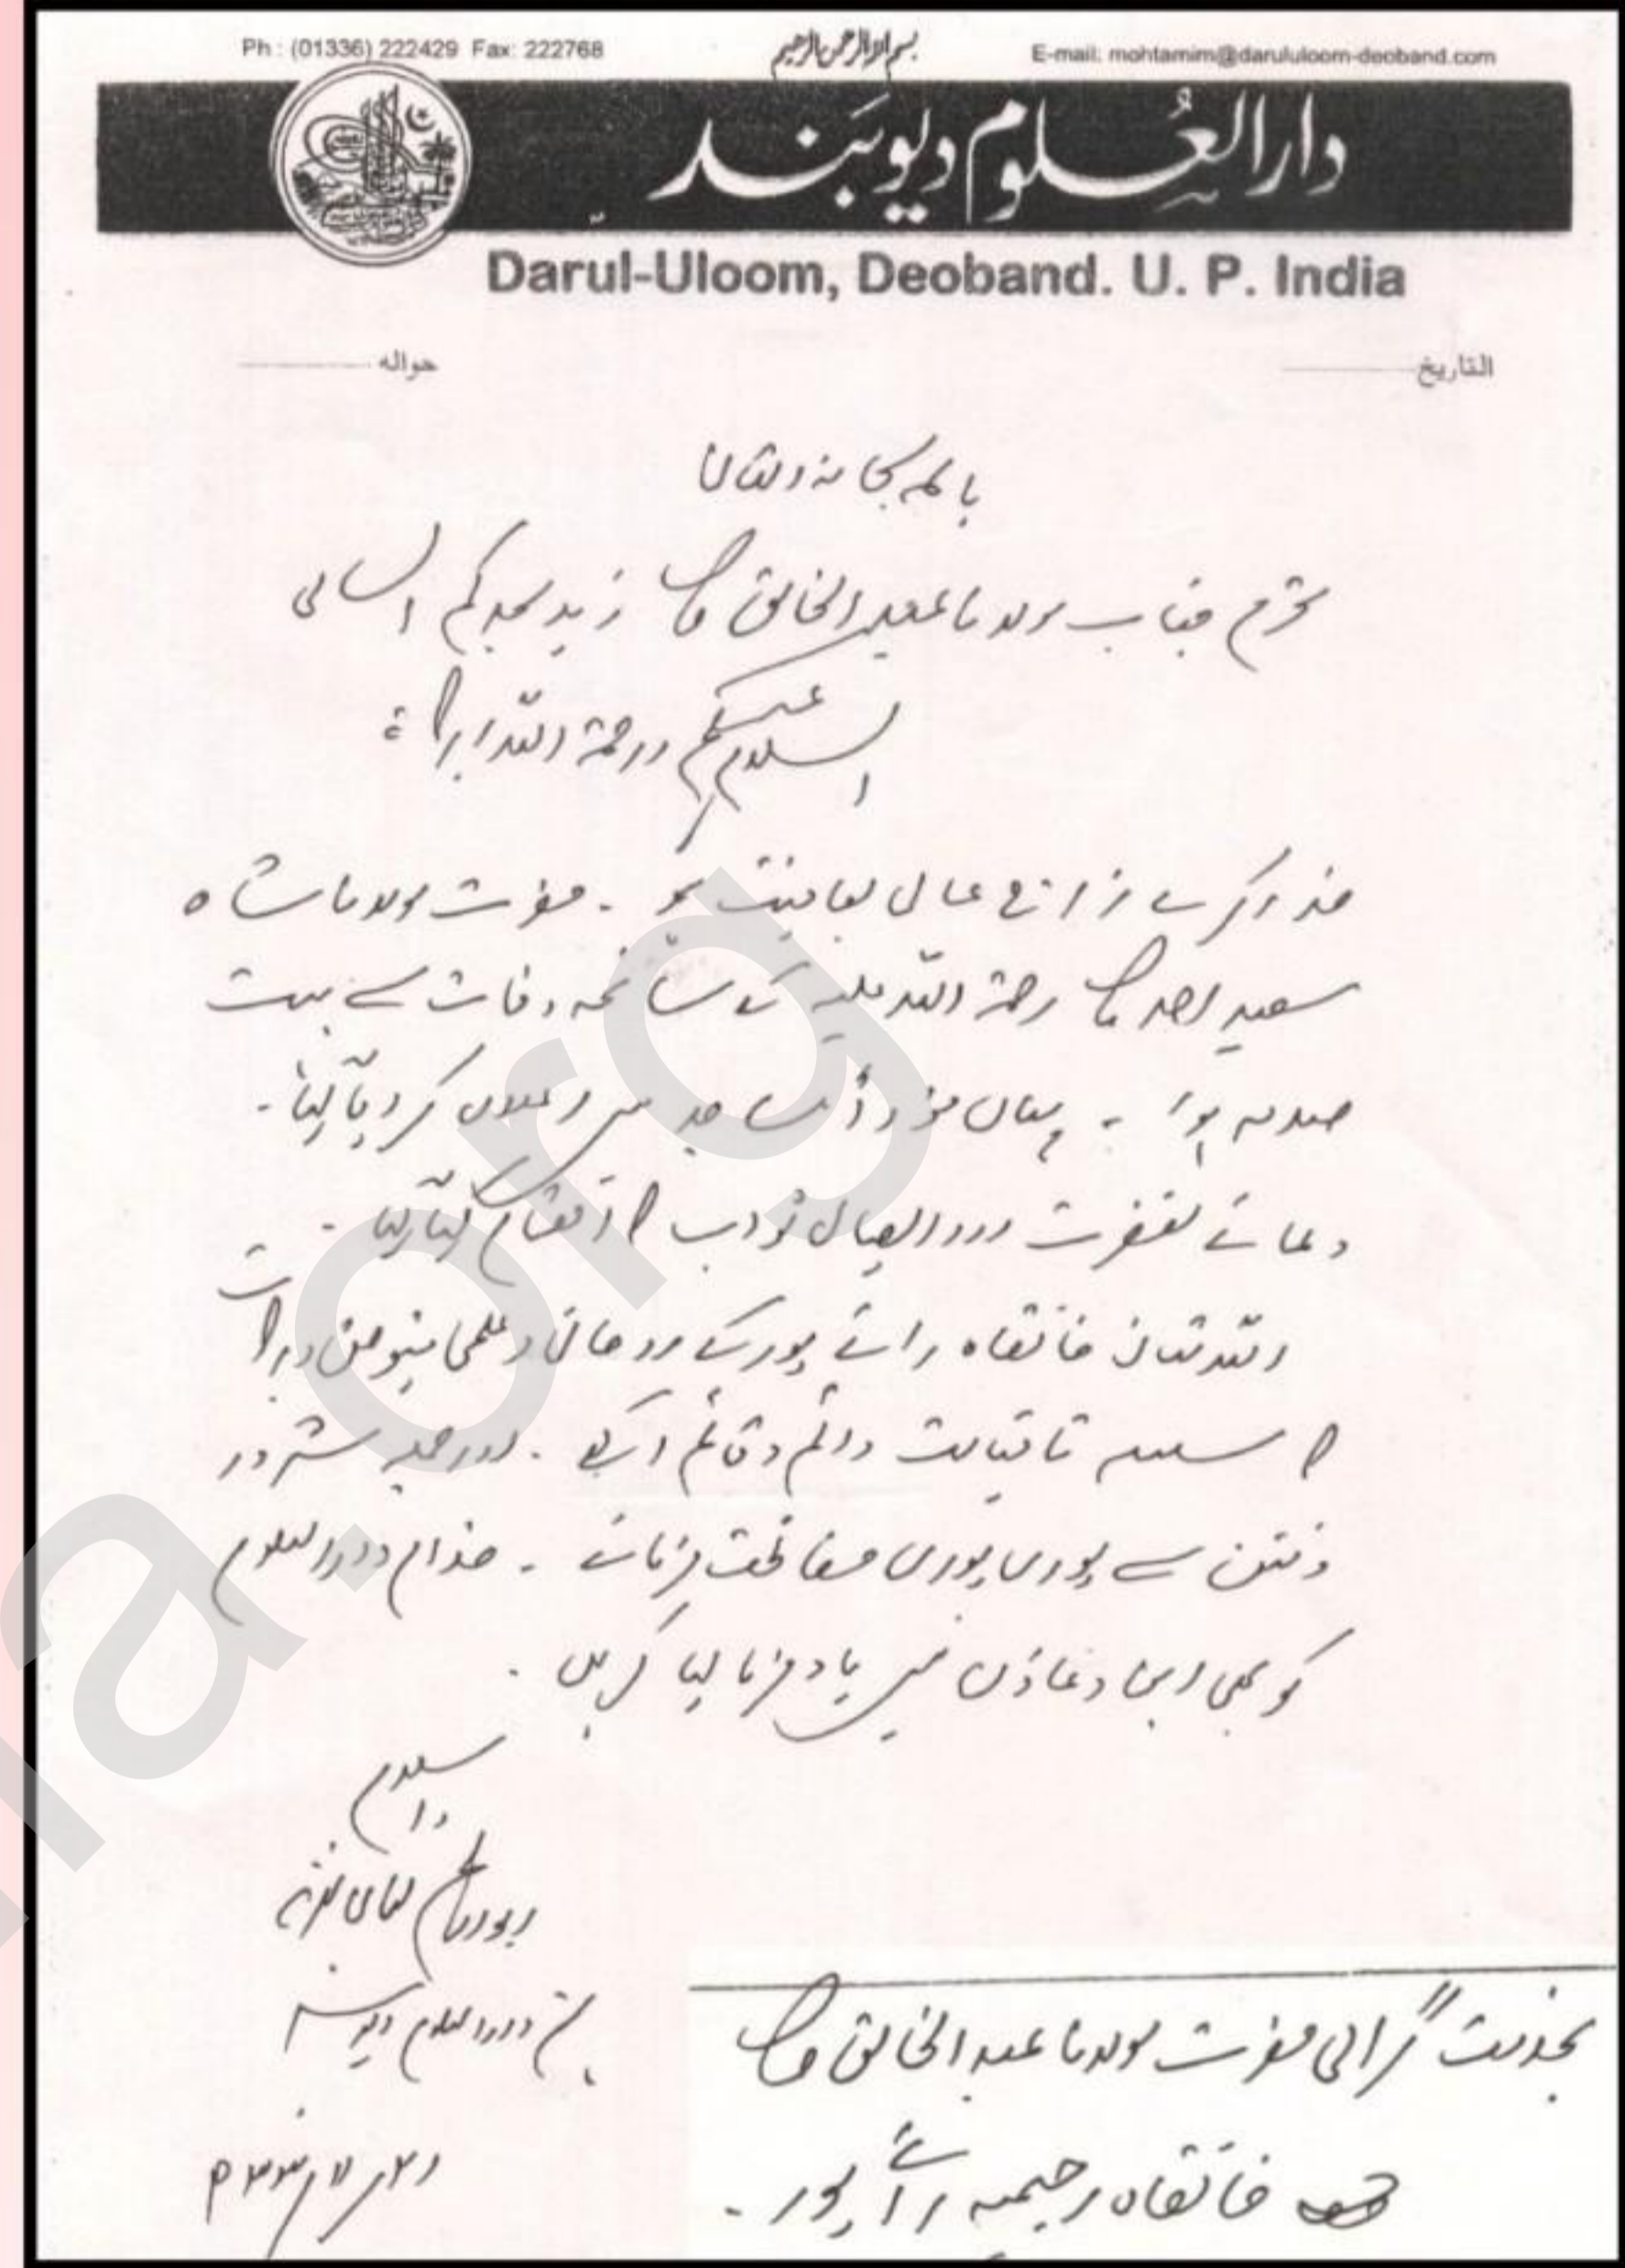 Ph : (01336) 222429 Fax: 222768
بسم اللہ الرحمن الرحیم
E-mail: mohtamim@darululoom-deoband.com
دارالعُلوم دیوبَند
Darul-Uloom, Deoband. U. P. India
التاریخ
حوالہ
باسمہ سبحانہ وتعالیٰ
محترم جناب مولانا عبدالخالق صاحب زید مجدکم السامی
السلام علیکم ورحمۃ اللہ وبرکاتہ
خدا کرے مزاج عالی بعافیت ہو ۔ حضرت مولانا شاہ
سعید احمد صاحب رحمۃ اللہ علیہ کے سانحہ وفات سے بہت
صدمہ ہوا ۔ یہاں فوراً مساجد میں اعلان کر دیا گیا ۔
دعائے مغفرت اور ایصال ثواب کا اہتمام کیا گیا ۔
اللہ تعالیٰ خانقاہ رائے پور کے روحانی و علمی فیوض و برکات
کا سلسلہ تا قیامت دائم و قائم رکھے ۔ اور جملہ شرور
و فتن سے پوری پوری حفاظت فرمائے ۔ خدام دارالعلوم
کو بھی اپنی دعاؤں میں یاد فرما لیا کریں ۔
والسلام
ابوالقاسم نعمانی غفرلہ
مہتمم دارالعلوم دیوبند
۳۳ھ
بخدمت گرامی حضرت مولانا عبدالخالق صاحب
خانقاہ رحیمیہ رائے پور ۔
ha.org